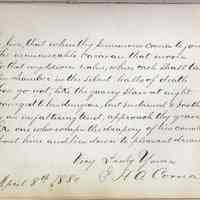 So live, that when thy summons comes to join
The innumerable caravan that moves
To that mysterious realm, where each shall take
chamber in the silent halls of death
thou go not, like the quarry slave at night
scourged to his dungeon, but sustained & soothed
By an unfaltering trust, approach thy grave
Like one who wraps the drapery of his couch
about him and lies down to pleasant dreams
Very Truly Yours
April 8th, 1880